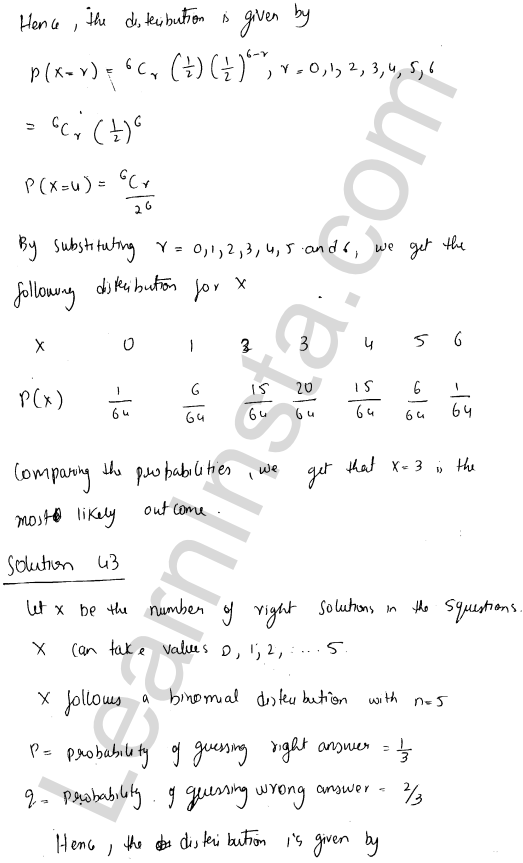 Hence, the distribution is given by
P(X=r) = ⁶Cᵣ (1/2) (1/2)⁶⁻ʳ, r = 0,1,2,3,4,5,6
= ⁶Cᵣ (1/2)⁶
P(X=4) = ⁶Cᵣ/2⁶
By substituting r = 0,1,2,3,4,5 and 6, we get the
following distribution for X
X 0 1 2 3 4 5 6
P(x) 1/64 6/64 15/64 20/64 15/64 6/64 1/64
Comparing the probabilities, we get that X=3 is the
most likely outcome.
Solution 43
Let X be the number of right solutions in the 5questions.
X can take values 0, 1, 2, .... 5.
X follows a binomial distribution with n=5
P = probability of guessing right answer = 1/3
q = probability of guessing wrong answer = 2/3
Hence, the distribution is given by
LearnInsta.com